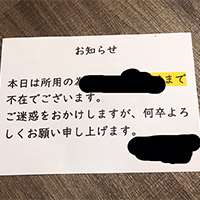 お知らせ
本日は所用の為まで
不在でございます。
ご迷惑をおかけしますが、何卒よろ
しくお願い申し上げます。